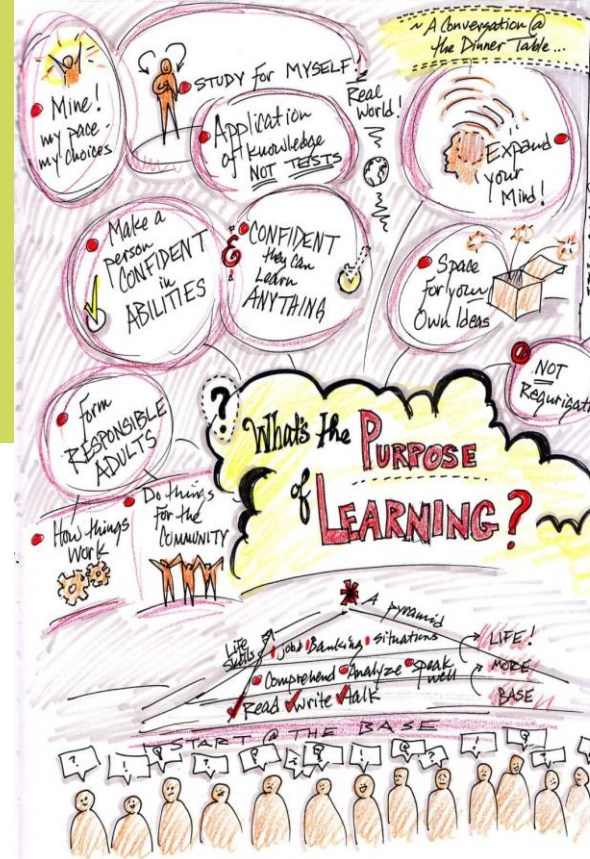 ~ A Conversation @
the Dinner Table...
Mine!
my pace -
my choices
STUDY for MYSELF!
Real
World!
Application
of knowledge
NOT TESTS
Expand
your
Mind!
Make a
person
CONFIDENT
in
ABILITIES
&
CONFIDENT
they can
Learn
ANYTHING
Space
for your
Own Ideas
NOT
Requrigati
form
RESPONSIBLE
ADULTS
?
What's the PURPOSE
of LEARNING?
How things
Work
Do things
for the
COMMUNITY
A pyramid
Life
Skills
jobs Banking situations
LIFE!
Comprehend Analyze speak
well
MORE
Read write talk
BASE
START @ THE BASE